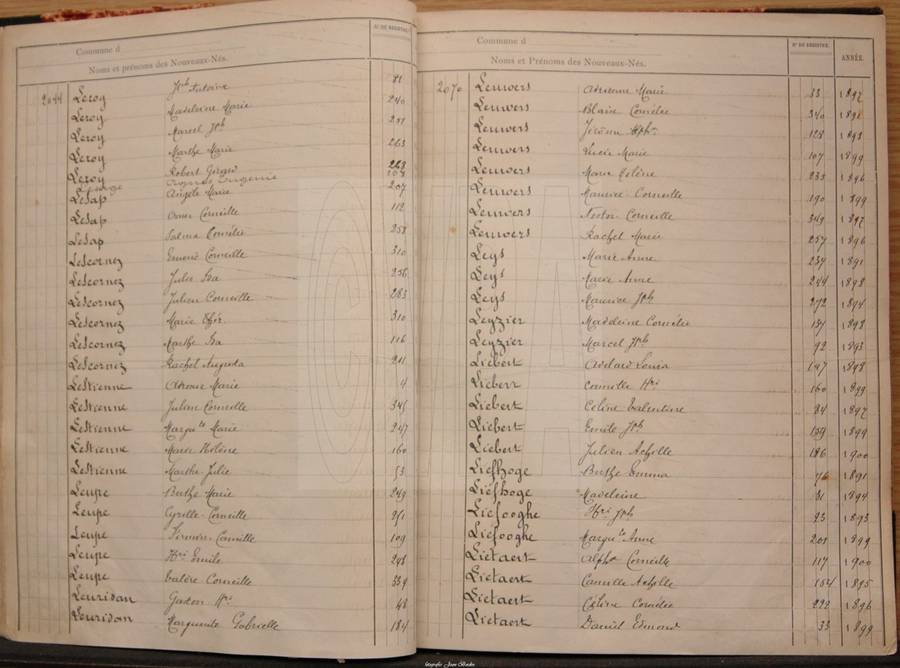 Commune d
Noms et prénoms des Nouveaux-Nés.
N° DE REGISTRE.
2044 Leroy Jph Antoine 81
Leroy Madeleine Marie 240
Leroy Marcel Jph
Leroy Marthe Marie 263
Leroy Robert Gérard 268
Eugénie
Lesap Angèle Marie 207
Lesap Omer Corneille 112
Lesap Palma Cornélie 258
Lescornez Corneille 310
Lescornez Jules 256
Lescornez Julien Corneille 283
Lescornez Marie 310
Lescornez Marthe 116
Lescornez Rachel Augusta
Lestienne Marie 4
Lestienne Julien Corneille 345
Lestienne Margu te Marie 247
Lestienne Marie Hélène 160
Lestienne Marthe Julie 53
Leupe Berthe Marie 249
Leupe Cyrille Corneille 251
Leupe Firmin Camille 109
Leupe Hri Emile 298
Leupe Valère Corneille 339
Leuridan Gaston Hri 48
Leuridan Marguerite Gabrielle 184
Commune d
Noms et Prénoms des Nouveaux-Nés.
N° DE REGISTRE.
ANNÉE.
2070 Leuwers Adrienne Marie 33 1897
Leuwers Blaise Cornélie 340 1891
Leuwers Jérôme 128 1898
Leuwers Lucie Marie 107 1899
Leuwers Marie Hélène 235 1896
Leuwers Maurice Corneille 190 1899
Leuwers Nestor Corneille 349 1897
Leuwers Rachel Marie 257 1896
Leys Marie Anne 237 1891
Leys Marie Anne 244 1898
Leys Maurice Jph 272 1894
Leyzier Madeleine Cornélie 157 1898
Leyzier Marcel Jph 92 1893
Liebert Louisa 147 1898
Liebert Camille Hri 160 1899
Liebert Céline Valentine 84 1897
Liebert Emile Jph 159 1899
Liebert Julien Achille 186 1900
Liefhoge Berthe Emma 76 1891
Liefhoge Madeleine 31 1894
Liefooghe Hri Jph 23 1893
Liefooghe Margu te Anne 201 1899
Lietaert Alph Corneille 117 1900
Lietaert Camille Achille 154 1895
Lietaert Céline Cornélie 292 1896
Lietaert Daniel Edmond 33 1899